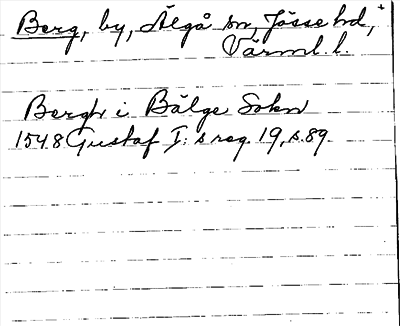 Berg, by, Älgå sn, Jösse hd,
Värml. l.
Bergh i Bälge Sokn
1548 Gustaf I:s reg. 19, s. 89.